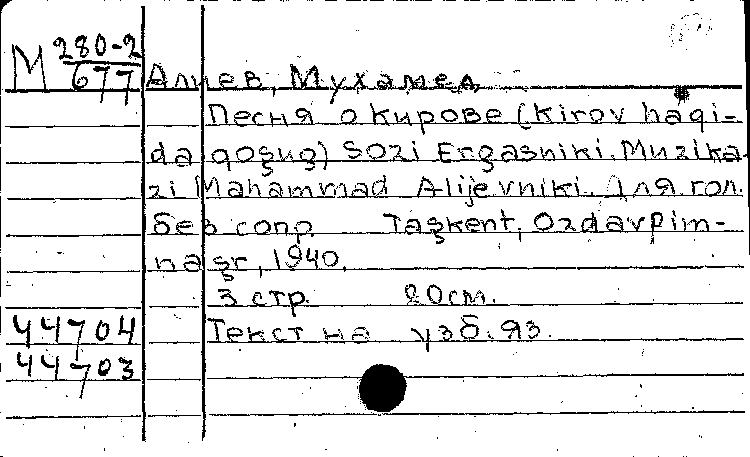 М 280-2
677 Алиев, Мухамед
Песня о Кирове (Kirov haqi-
da qoşuq) Sozi Ergaşniki. Muzika-
zi Mahammad Alijevniki. Для гол.
без сопр. Taşkent, Ozdavpim-
naşr, 1940.
3 стр. 20 см.
44704 Текст на узб. яз.
44703